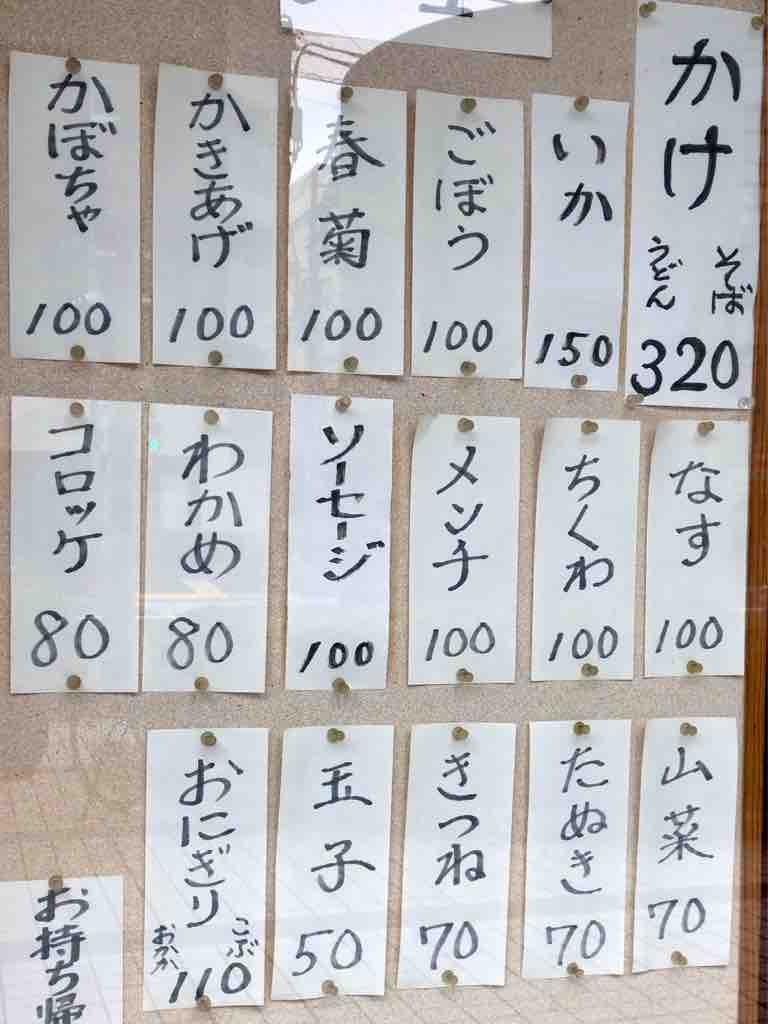 かけ
そば
うどん
320
いか
150
ごぼう
100
春菊
100
かきあげ
100
かぼちゃ
100
なす
100
ちくわ
100
メンチ
100
ソーセージ
100
わかめ
80
コロッケ
80
山菜
70
たぬき
70
きつね
70
玉子
50
おにぎり
こぶ
おかか
110
お持ち帰